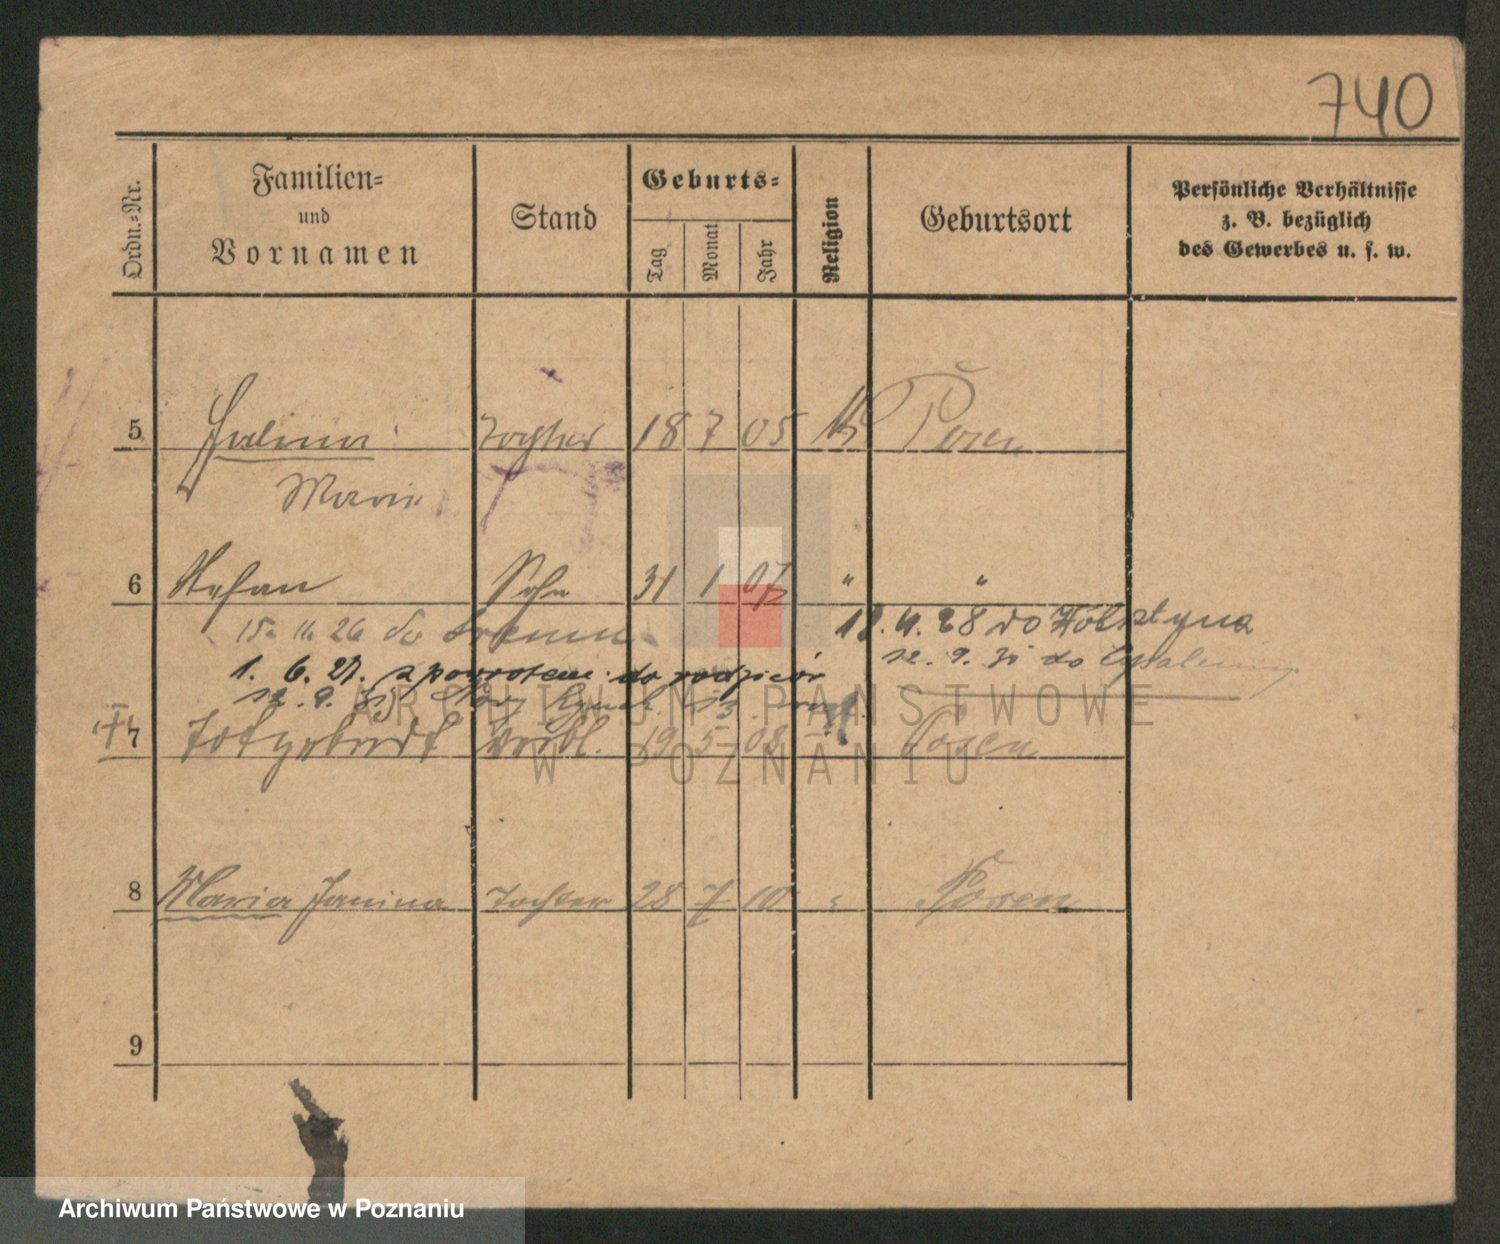 740
Ordn.=Nr.
Familien=
und
Vornamen
Stand
Geburts=
Tag
Monat
Jahr
Religion
Geburtsort
Persönliche Verhältnisse
z. B. bezüglich
des Gewerbes u. s. w.
5 Halina Tochter 18 7 05 Posen
Marie
6 Stefan Sohn 31 1 07 " "
15. 11. 26 do
4. 28 do
1. 6. 27. z powrotem do rodziców
12. 9. do
12. 9.
7 Totgeburt weibl. 19 5 08 Posen
8 Maria Janina Tochter 28 7 10 Posen
9
ARCHIWUM PAŃSTWOWE
W POZNANIU
Archiwum Państwowe w Poznaniu